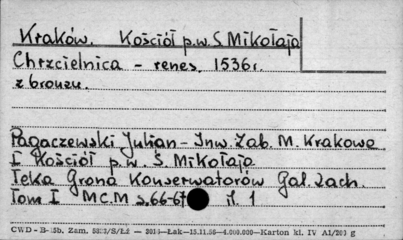 Kraków. Kościół p.w. S. Mikołaja
Chrzcielnica - renes. 1536 r.
z bronzu.
Pagaczewski Julian - Inw. Zab. M. Krakowa
I Kościół p. w. Ś. Mikołaja
Teka Grona Konserwatorów Gal. Zach.
Tom I MCM s. 66-67 il. 1
CWD - B- Sb. Zam. S/Łż — Łak—15.11.55—4.000.000—Karton kl. IV A1/203 g